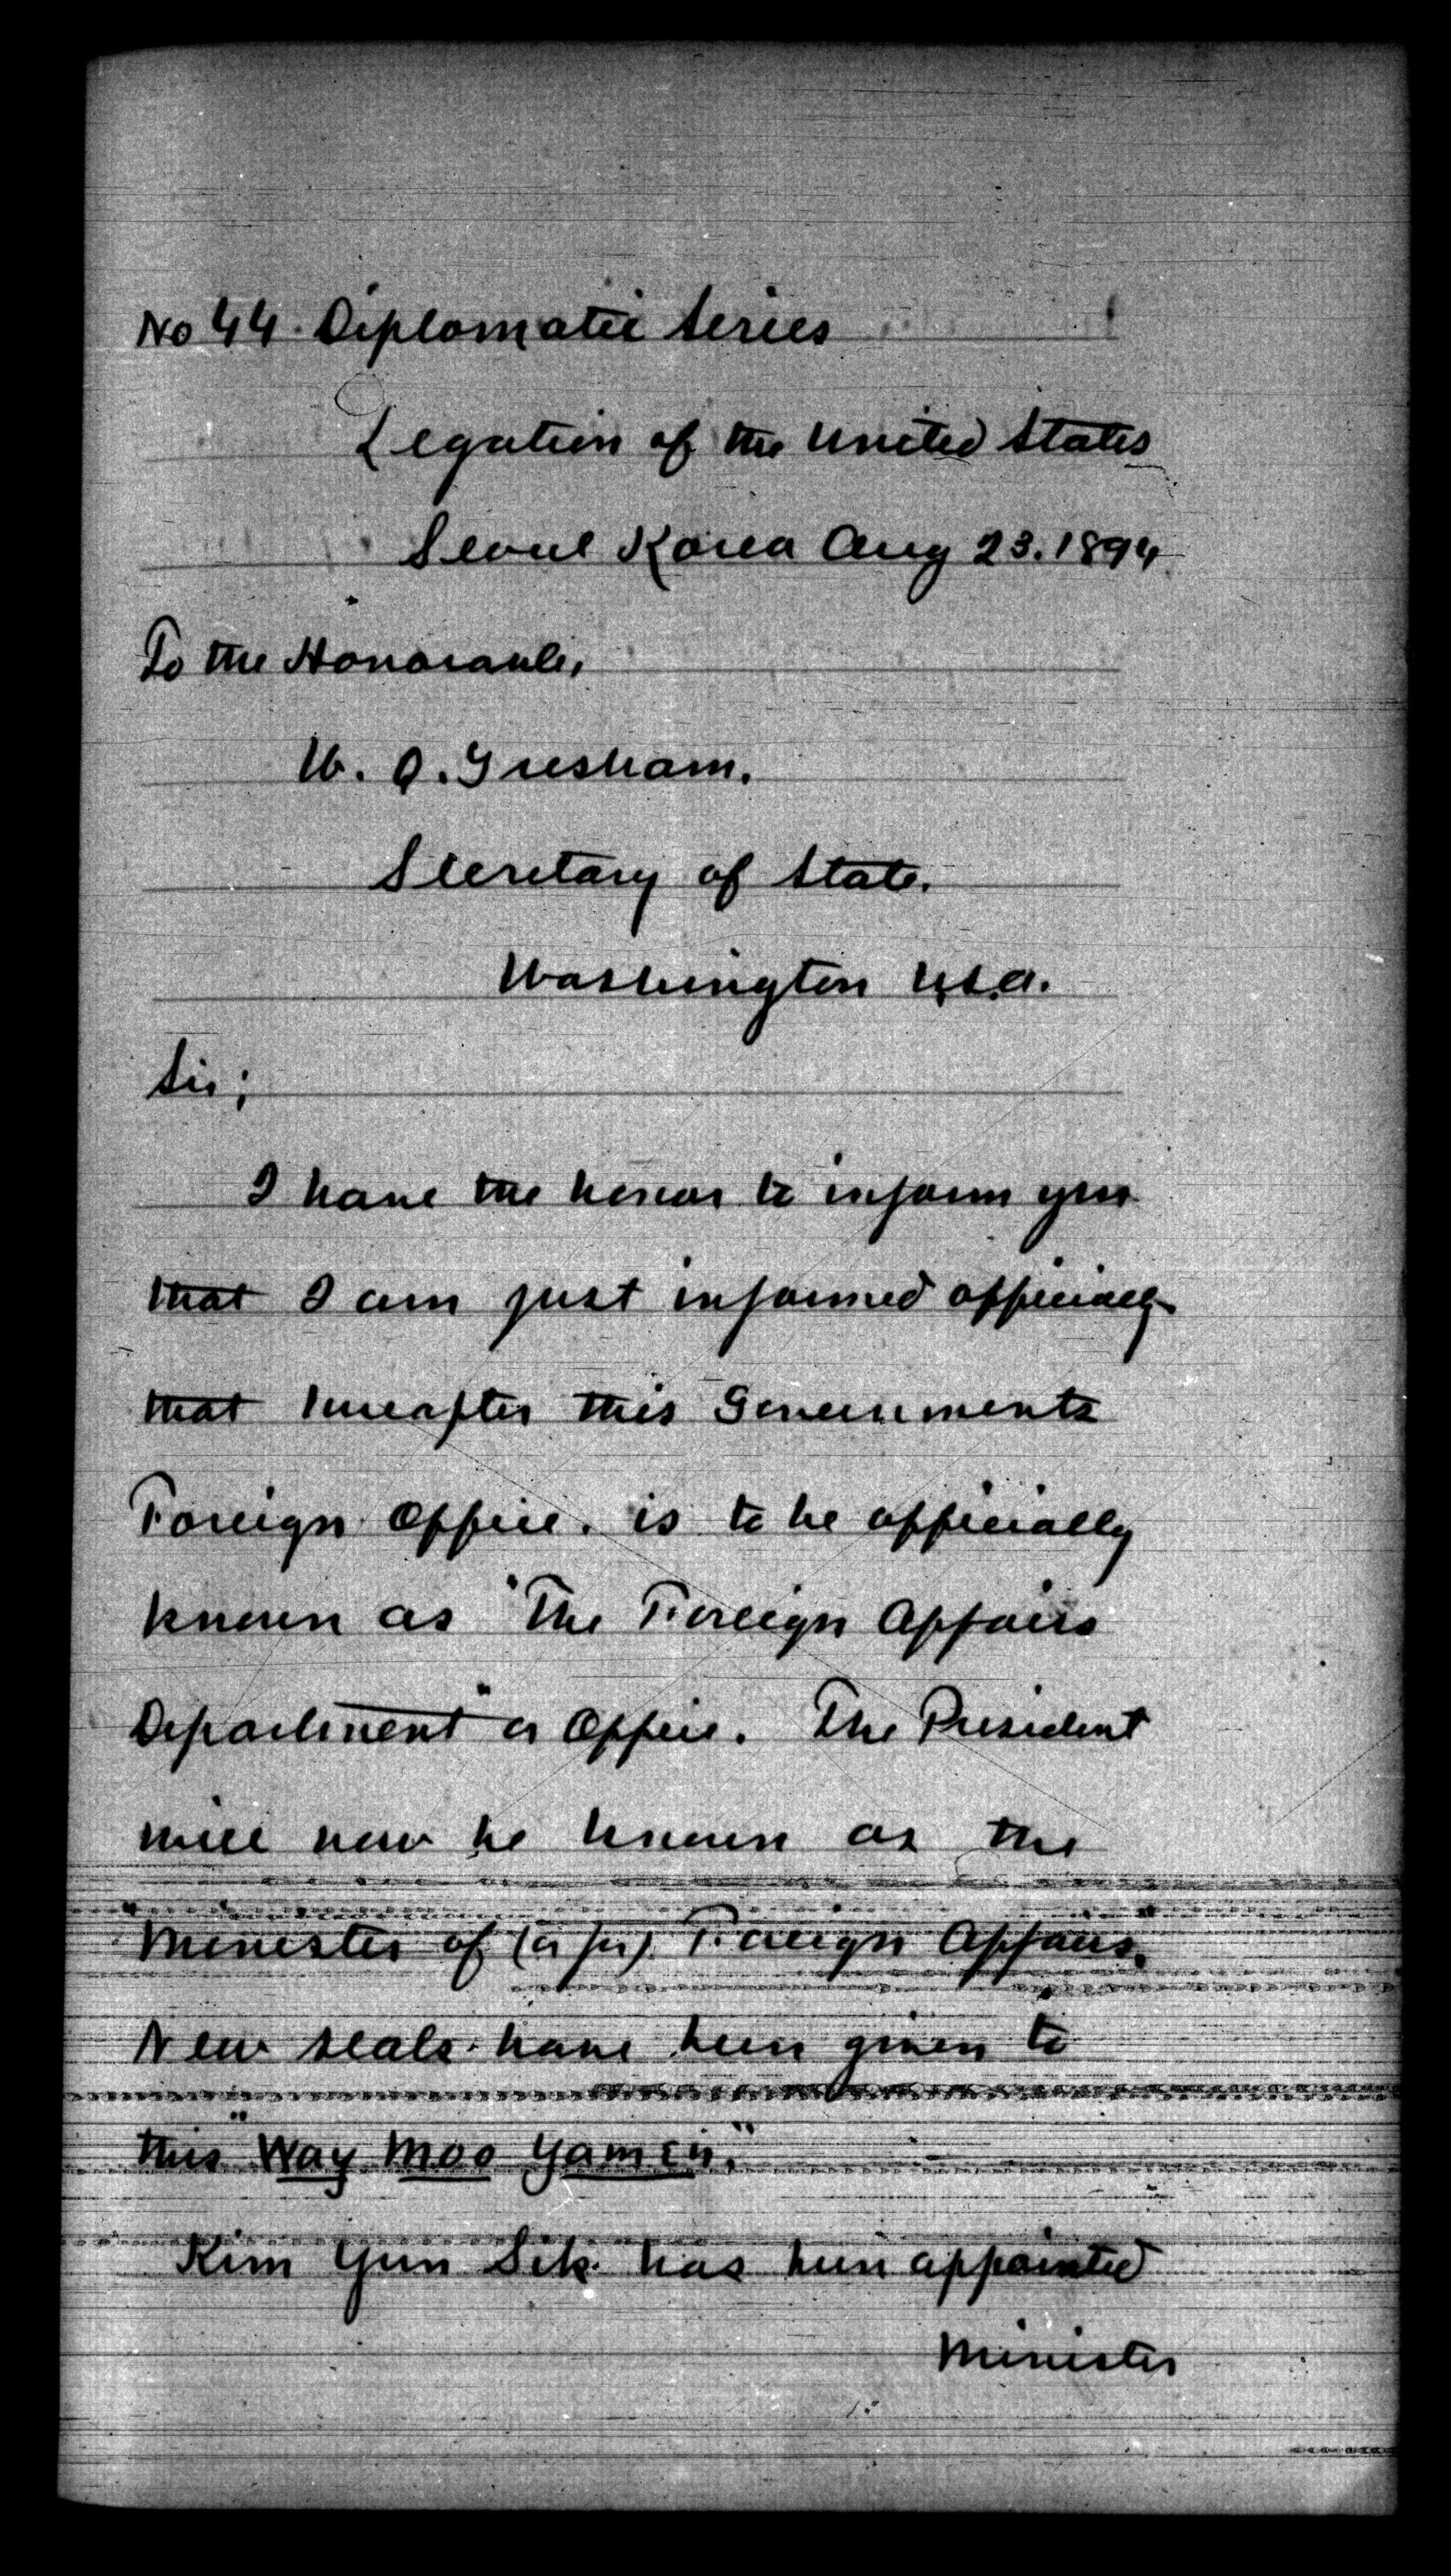 No 44. Diplomatic Series
Legation of the United States
Seoul Korea Aug 23. 1894
To the Honorable,
W. Q. Gresham.
Secretary of State.
Washington U.S.A.
Sir;
I have the honor to inform you
that I am just informed officially
that hereafter this Governments
Foreign Office. is to be officially
known as "The Foreign Affairs
Department" or Office. The President
will now be known as the
"Minister of (or for) Foreign Affairs."
New seals have been given to
this "Way Moo Yamen."
Kim Yun Sik has been appointed
Minister